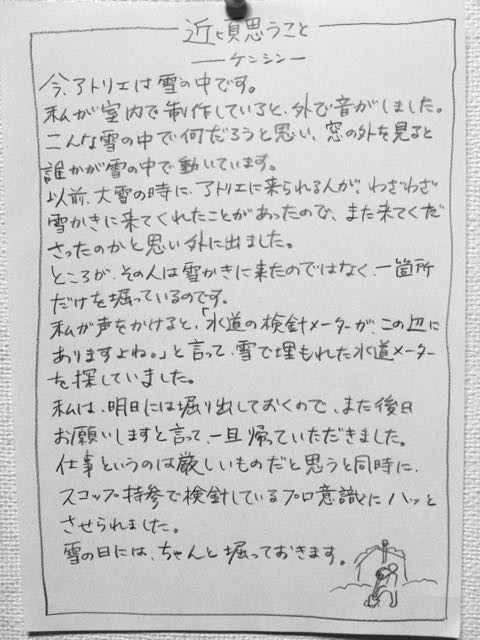 近頃思うこと
ーケンシンー
今、アトリエは雪の中です。
私が室内で制作していると、外で音がしました。
こんな雪の中で何だろうと思い、窓の外を見ると
誰かが雪の中で動いています。
以前、大雪の時に、アトリエに来られる人が、わざわざ
雪かきに来てくれたことがあったので、また来てくだ
さったのかと思い外に出ました。
ところが、その人は雪かきに来たのではなく、一箇所
だけを掘っているのです。
私が声をかけると、「水道の検針メーターが、この辺に
ありますよね。」と言って、雪で埋もれた水道メーター
を探していました。
私は、明日には掘り出しておくので、また後日
お願いしますと言って、一旦帰っていただきました。
仕事というのは厳しいものだと思うと同時に、
スコップ持参で検針しているプロ意識にハッと
させられました。
雪の日には、ちゃんと掘っておきます。